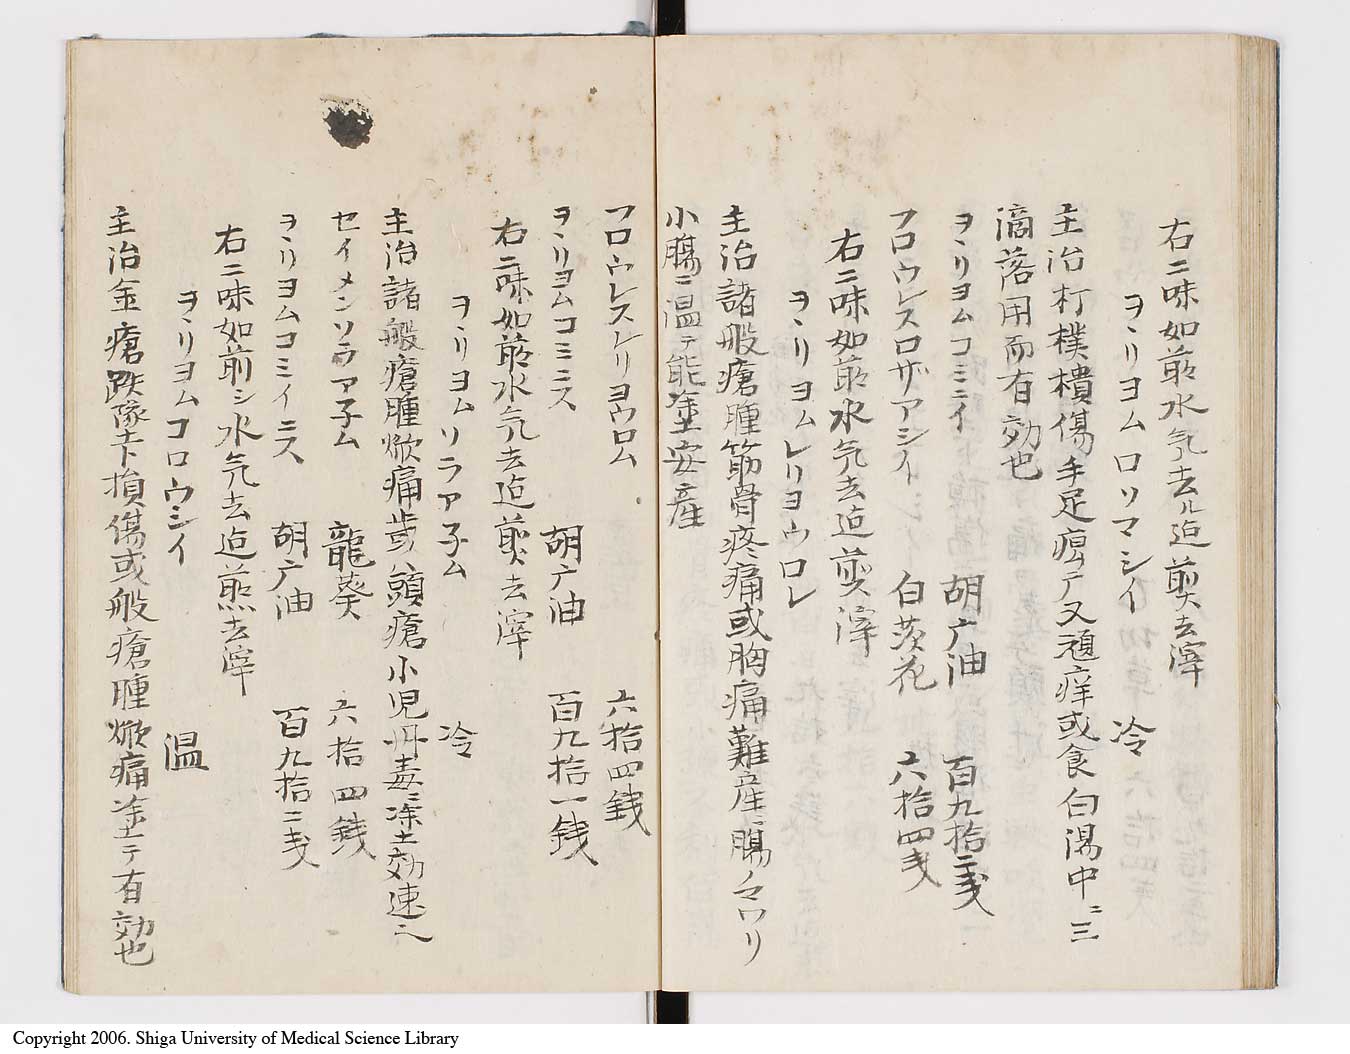 右二味如前水気去ル迄煎去滓
ヲヽリヨムロソマシイ 冷
主治打撲損傷手足痺テ又頑痒或食白湯中ニ三
滴落用而有効也
ヲヽリヨムコミニイ 胡广油 百九拾二戋
フロウレスロザアシイ 白茨花 六拾四戋
右二味如前水気去迄煎滓
ヲヽリヨムレリヨウロレ
主治諸般瘡腫筋骨疼痛或胸痛難産ニ腸ノマワリ
小腸ニ温テ能塗安産
フロウレスレリヨウロム 六拾四銭
ヲヽリヨムコミニス 胡广油 百九拾一銭
右二味如前水気去迄煎去滓
ヲヽリヨムソラア子ム 冷
主治諸般瘡腫焮痛或頭瘡小児丹毒ニ塗土効速ニ
セイメンソラア子ム 龍葵 六拾四銭
ヲヽリヨムコミイニス 胡广油 百九拾二戋
右二味如前シ水気去迄煎去滓
ヲヽリヨムコロウシイ 温
主治金瘡跌墜下損傷或般瘡腫焮痛塗テ有効也
Copyright 2006. Shiga University of Medical Science Library